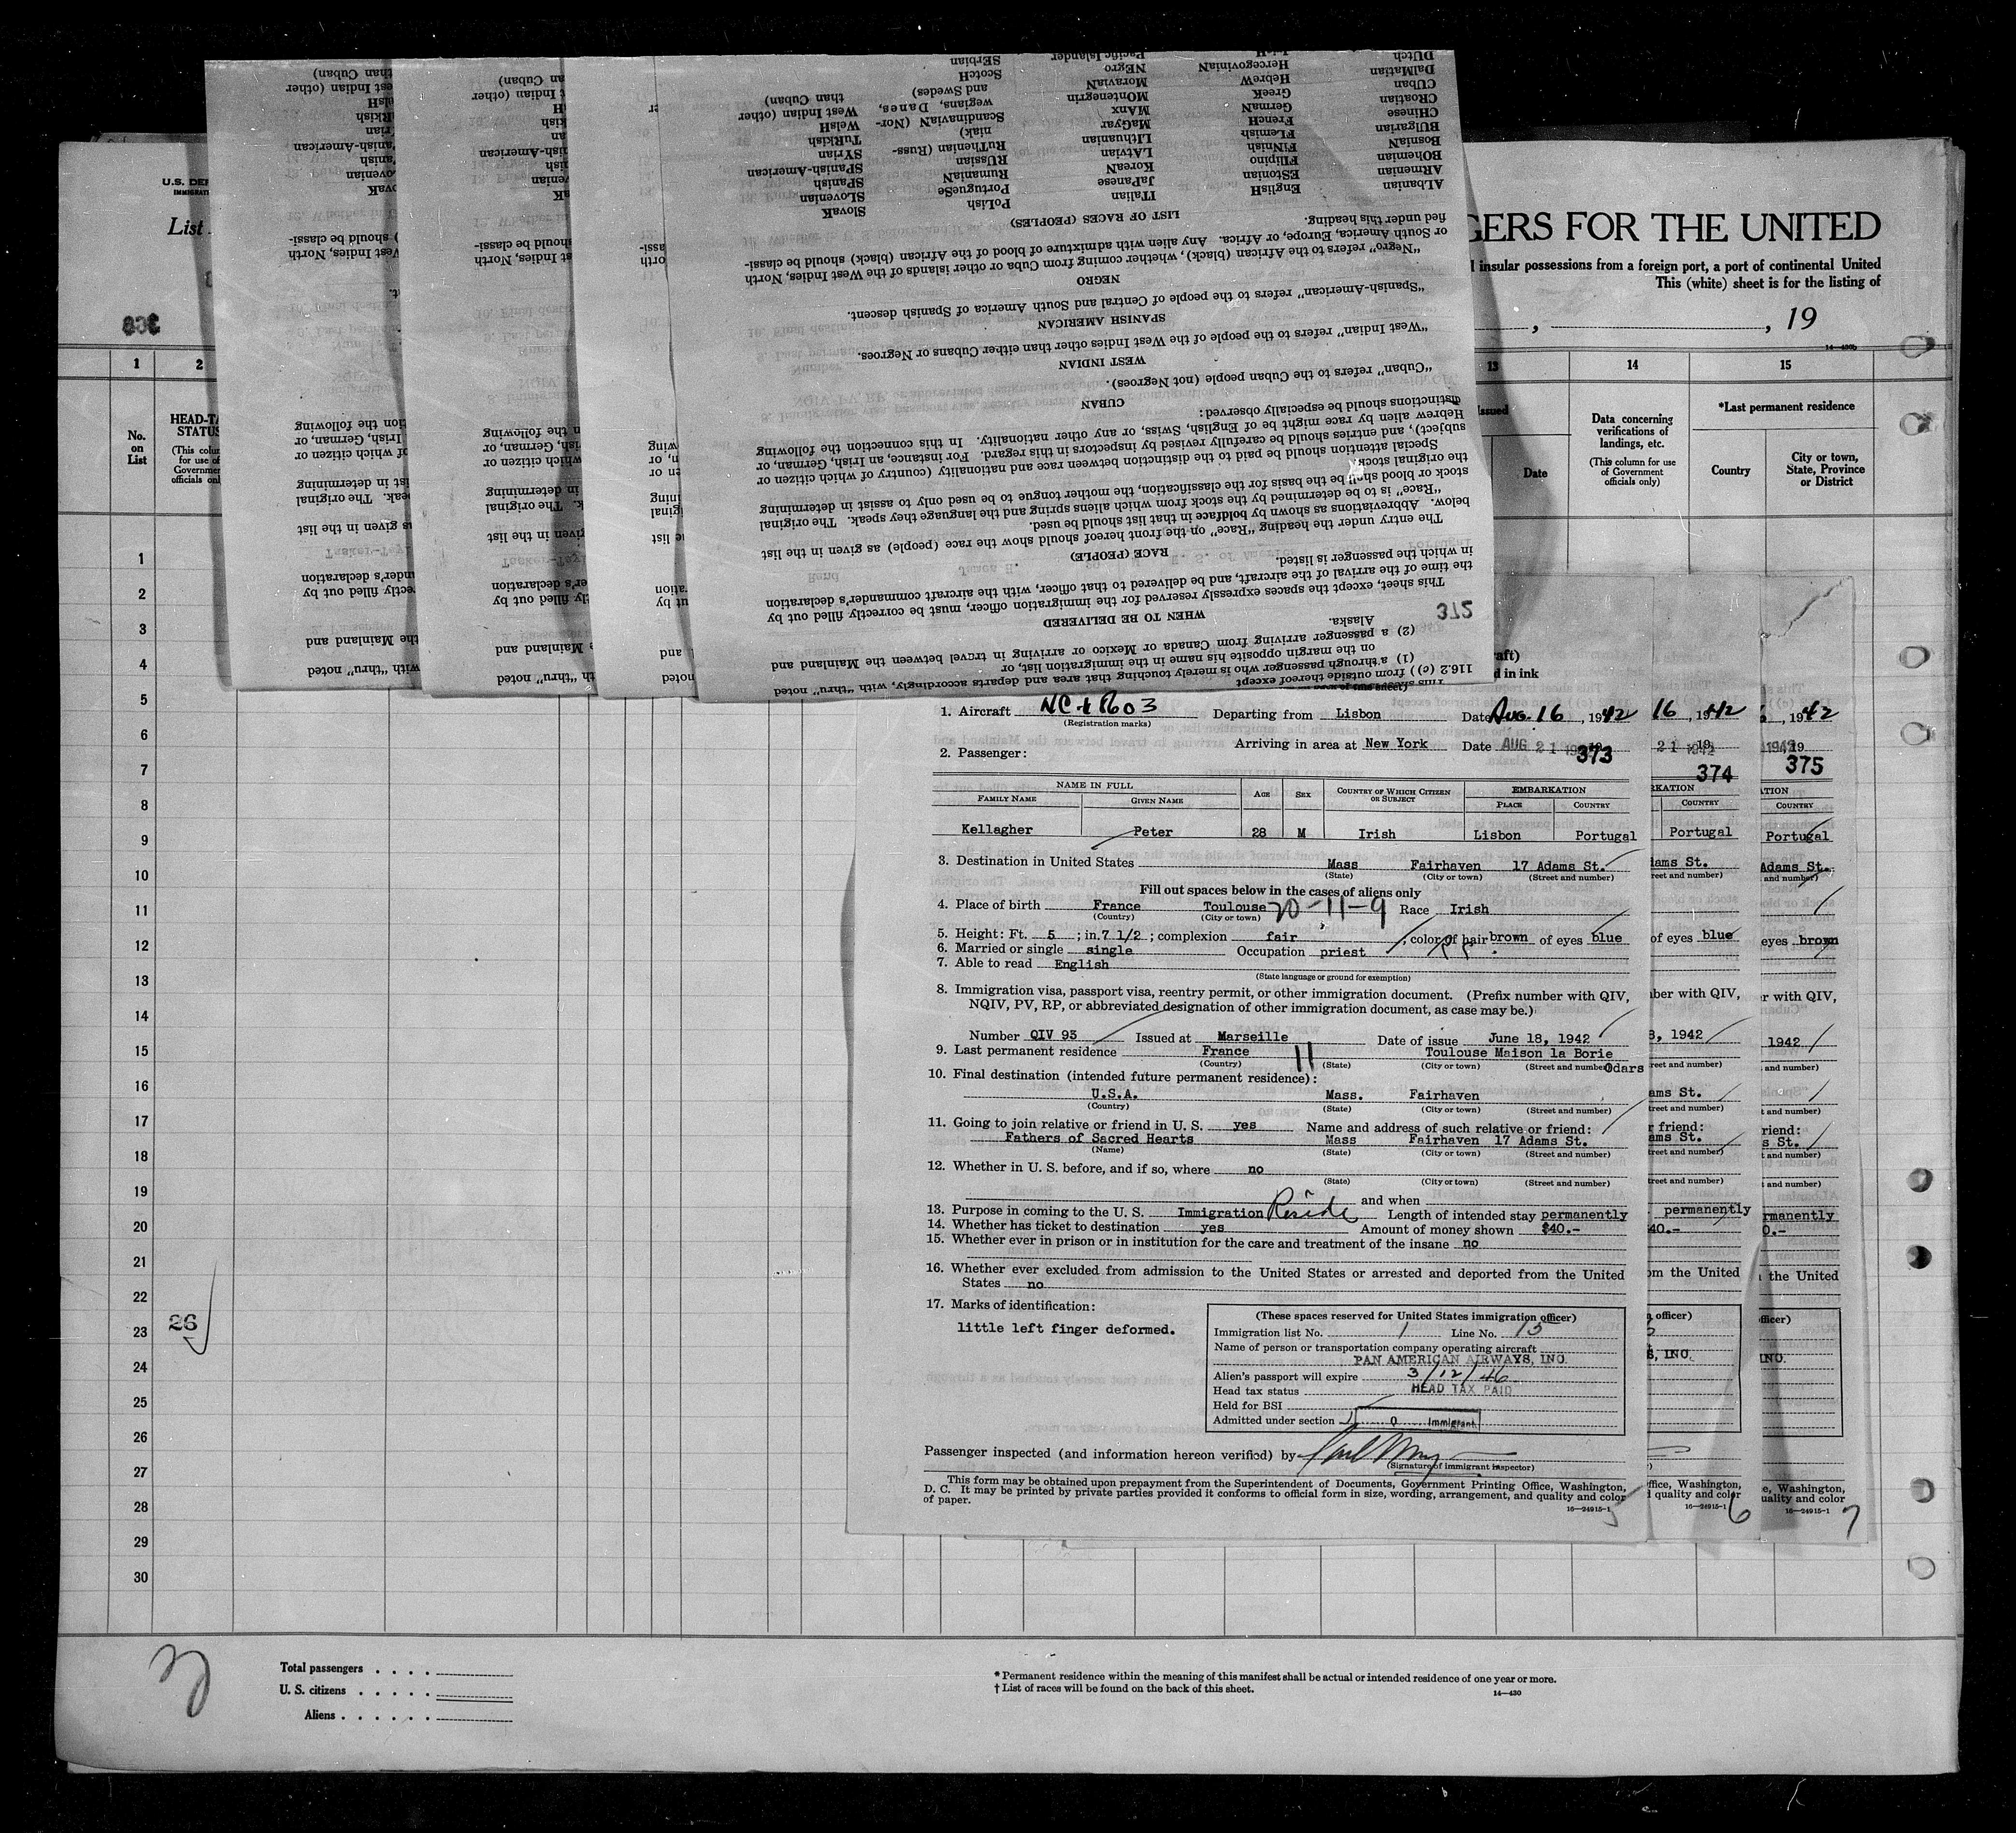 U.S. DE
IMMIGRAT
List
368
GERS FOR THE UNITED
insular possessions from a foreign port, a port of continental United
This (white) sheet is for the listing of
, , 19
1 2 13 14 15
No. on List
HEAD-TA STATUS
(This colu for use of Governme officials onl
Issued
Date
Data concerning verifications of landings, etc.
(This column for use of Government officials only)
*Last permanent residence
Country
City or town, State, Province or District
1
2
3
4
5
6
7
8
9
10
11
12
13
14
15
16
17
18
19
20
21
22
23
24
25
26
27
28
29
30
26
Total passengers . . . .
U. S. citizens . . . . .
Aliens . . . . . .
* Permanent residence within the meaning of this manifest shall be actual or intended residence of one year or more.
† List of races will be found on the back of this sheet.
14—430
116.2 (c)) from outside thereof except
(1) a through passenger who is merely touching that area and departs accordingly, with "thru" noted
on the margin opposite his name in the immigration list, or
(2) a passenger arriving from Canada or Mexico or arriving in travel between the Mainland and
Alaska.
WHEN TO BE DELIVERED
This sheet, except the spaces expressly reserved for the immigration officer, must be correctly filled out by
the time of the arrival of the aircraft, and be delivered to that officer, with the aircraft commander's declaration
in which the passenger is listed.
RACE (PEOPLE)
The entry under the heading "Race" on the front hereof should show the race (people) as given in the list
below. Abbreviations as shown by boldface in that list should be used.
"Race" is to be determined by the stock from which aliens spring and the language they speak. The original
stock or blood shall be the basis for the classification, the mother tongue to be used only to assist in determining
the original stock.
Special attention should be paid to the distinction between race and nationality (country of which citizen or
subject), and entries should be carefully revised by inspectors in this regard. For instance, an Irish, German, or
Hebrew alien by race might be of English, Swiss, or any other nationality. In this connection the following
distinctions should be especially observed:
CUBAN
"Cuban" refers to the Cuban people (not Negroes).
WEST INDIAN
"West Indian" refers to the people of the West Indies other than either Cubans or Negroes.
SPANISH AMERICAN
"Spanish-American" refers to the people of Central and South America of Spanish descent.
NEGRO
"Negro" refers to the African (black), whether coming from Cuba or other islands of the West Indies, North
or South America, Europe, or Africa. Any alien with admixture of blood of the African (black) should be classi-
fied under this heading.
LIST OF RACES (PEOPLES)
ALbanian EnglisH ITalian PoLish SlovaK
ARmenian EStonian JaPanese PortugueSe SLOvenian
BOhemian FIlipino KoreaN RumaniaN SPanish
BosniaN FiNnish LAtvian RUssian SPanish-American
BUlgarian FLemish LIthuanian RuThenian (Russ- SYrian
CHinese FrencH MaGyar niak) TuRkish
CRoatian GermaN MAnx ScandinaviaN (Nor- WelsH
CUban GreeK MOntenegrin wegians, Danes, West Indian (other
DalMatian HebreW MoraviaN and Swedes) than Cuban)
DUtch HercegoviniaN NEgro ScotcH
Pacific Islander SErbian
372
aft)
d in ink
1. Aircraft NC 18603 Departing from Lisbon Date Aug. 16, 1942
(Registration marks)
Arriving in area at New York Date AUG 21 1942
2. Passenger:
373
NAME IN FULL AGE SEX COUNTRY OF WHICH CITIZEN OR SUBJECT EMBARKATION
FAMILY NAME GIVEN NAME PLACE COUNTRY
Kellagher Peter 28 M Irish Lisbon Portugal
3. Destination in United States Mass Fairhaven 17 Adams St.
(State) (City or town) (Street and number)
Fill out spaces below in the cases of aliens only
4. Place of birth France Toulouse 70-11-9 Race Irish
(Country) (City or town)
5. Height: Ft. 5 ; in. 7 1/2 ; complexion fair , color of hair brown of eyes blue
6. Married or single single Occupation priest
7. Able to read English
(State language or ground for exemption)
8. Immigration visa, passport visa, reentry permit, or other immigration document. (Prefix number with QIV,
NQIV, PV, RP, or abbreviated designation of other immigration document, as case may be.)
Number QIV 93 Issued at Marseille Date of issue June 18, 1942
9. Last permanent residence France 11 Toulouse Maison la Borie
(Country) (State) (City or town) (Street and number) Odars
10. Final destination (intended future permanent residence):
U.S.A. Mass. Fairhaven
(Country) (State) (City or town) (Street and number)
11. Going to join relative or friend in U. S. yes Name and address of such relative or friend:
Fathers of Sacred Hearts Mass Fairhaven 17 Adams St.
(Name) (State) (City or town) (Street and number)
12. Whether in U. S. before, and if so, where no
(State) (City or town) (Street and number)
and when
13. Purpose in coming to the U. S. Immigration Reside Length of intended stay permanently
14. Whether has ticket to destination yes Amount of money shown $40.-
15. Whether ever in prison or in institution for the care and treatment of the insane no
16. Whether ever excluded from admission to the United States or arrested and deported from the United
States no
17. Marks of identification:
little left finger deformed.
(These spaces reserved for United States immigration officer)
Immigration list No. 1 Line No. 15
Name of person or transportation company operating aircraft
PAN AMERICAN AIRWAYS, INC.
Alien's passport will expire 3/12/46
Head tax status HEAD TAX PAID
Held for BSI
Admitted under section Immigrant
Passenger inspected (and information hereon verified) by
(Signature of immigrant inspector)
This form may be obtained upon prepayment from the Superintendent of Documents, Government Printing Office, Washington,
D. C. It may be printed by private parties provided it conforms to official form in size, wording, arrangement, and quality and color
of paper.
16—24915-1
5
16, 1942
21 1942
374
RKATION
COUNTRY
Portugal
ams St.
reet and number)
of eyes blue
ber with QIV,
8, 1942
reet and number)
ams St.
treet and number)
r friend:
ams St.
treet and number)
permanently
40.-
om the United
officer)
S, INC.
ffice, Washington,
quality and color
16—24915-1
6
, 1942
375
TION
COUNTRY
Portugal
Adams St.
and number)
eyes brown
r with QIV,
1942
and number)
t and number)
riend:
s St.
t and number)
rmanently
0.-
the United
fficer)
INC.
e, Washington,
uality and color
16—24915-1
7